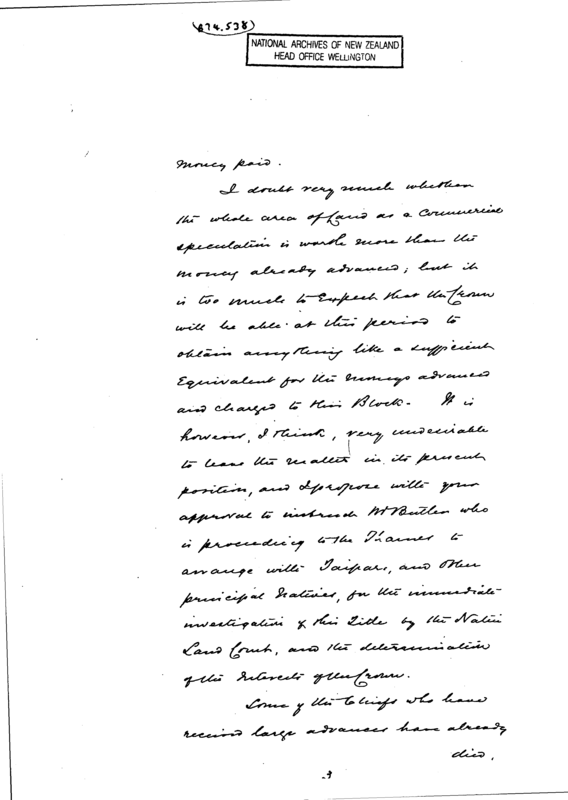 (874.538)
NATIONAL ARCHIVES OF NEW ZEALAND
HEAD OFFICE WELLINGTON
money paid.
I doubt very much whether
the whole area of Land as a commercial
speculation is worth more than the
money already advanced; but it
is too much to Expect that the Crown
will be able at this period to
obtain anything like a sufficient
Equivalent for the moneys advanced
and charged to this Block. It is
however, I think, very undesirable
to leave the matter in its present
position, and I propose with your
approval to instruct Mr Butler who
is proceeding to the Thames to
arrange with Taipari, and other
principal Natives, for the immediate
investigation of this Title by the Native
Land Court, and the determination
of the Interests of the Crown.
Some of the Chiefs who have
received large advances have already
died.